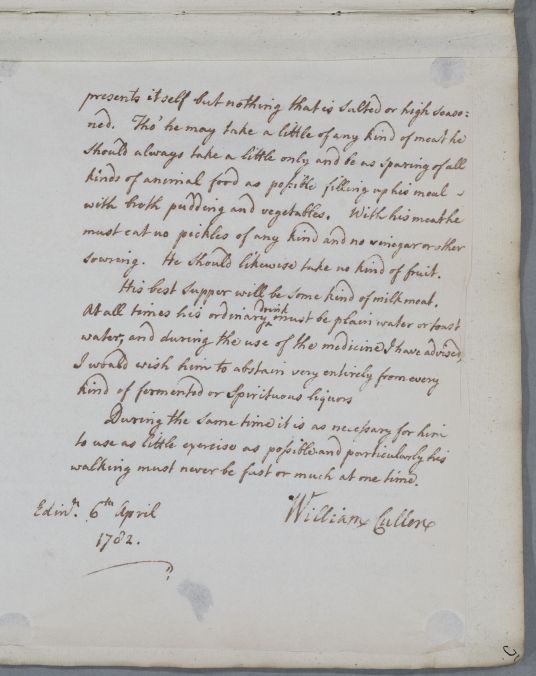 presents itself but nothing that is salted or high seaso:
ned. Tho' he may take a little of any kind of meat he
should always take a little only and be as sparing of all
kinds of animal food as possible filling up his meal
with broth pudding and vegetables. With his meat he
must eat no pickles of any kind and no vinegar or other
sowring. He should likewise take no kind of fruit.
His best supper will be some kind of milk meat.
At all times his ordinary drink must be plain water or toast
water, and during the use of the medicine I have advised,
I would wish him to abstain very entirely from every
kind of fermented or Spirituous liquors
During the same time it is as necessary for him
to use as little exercise as possible and particularly his
walking must never be fast or much at one time.
Edinr. 6th April
1782.
William Cullen